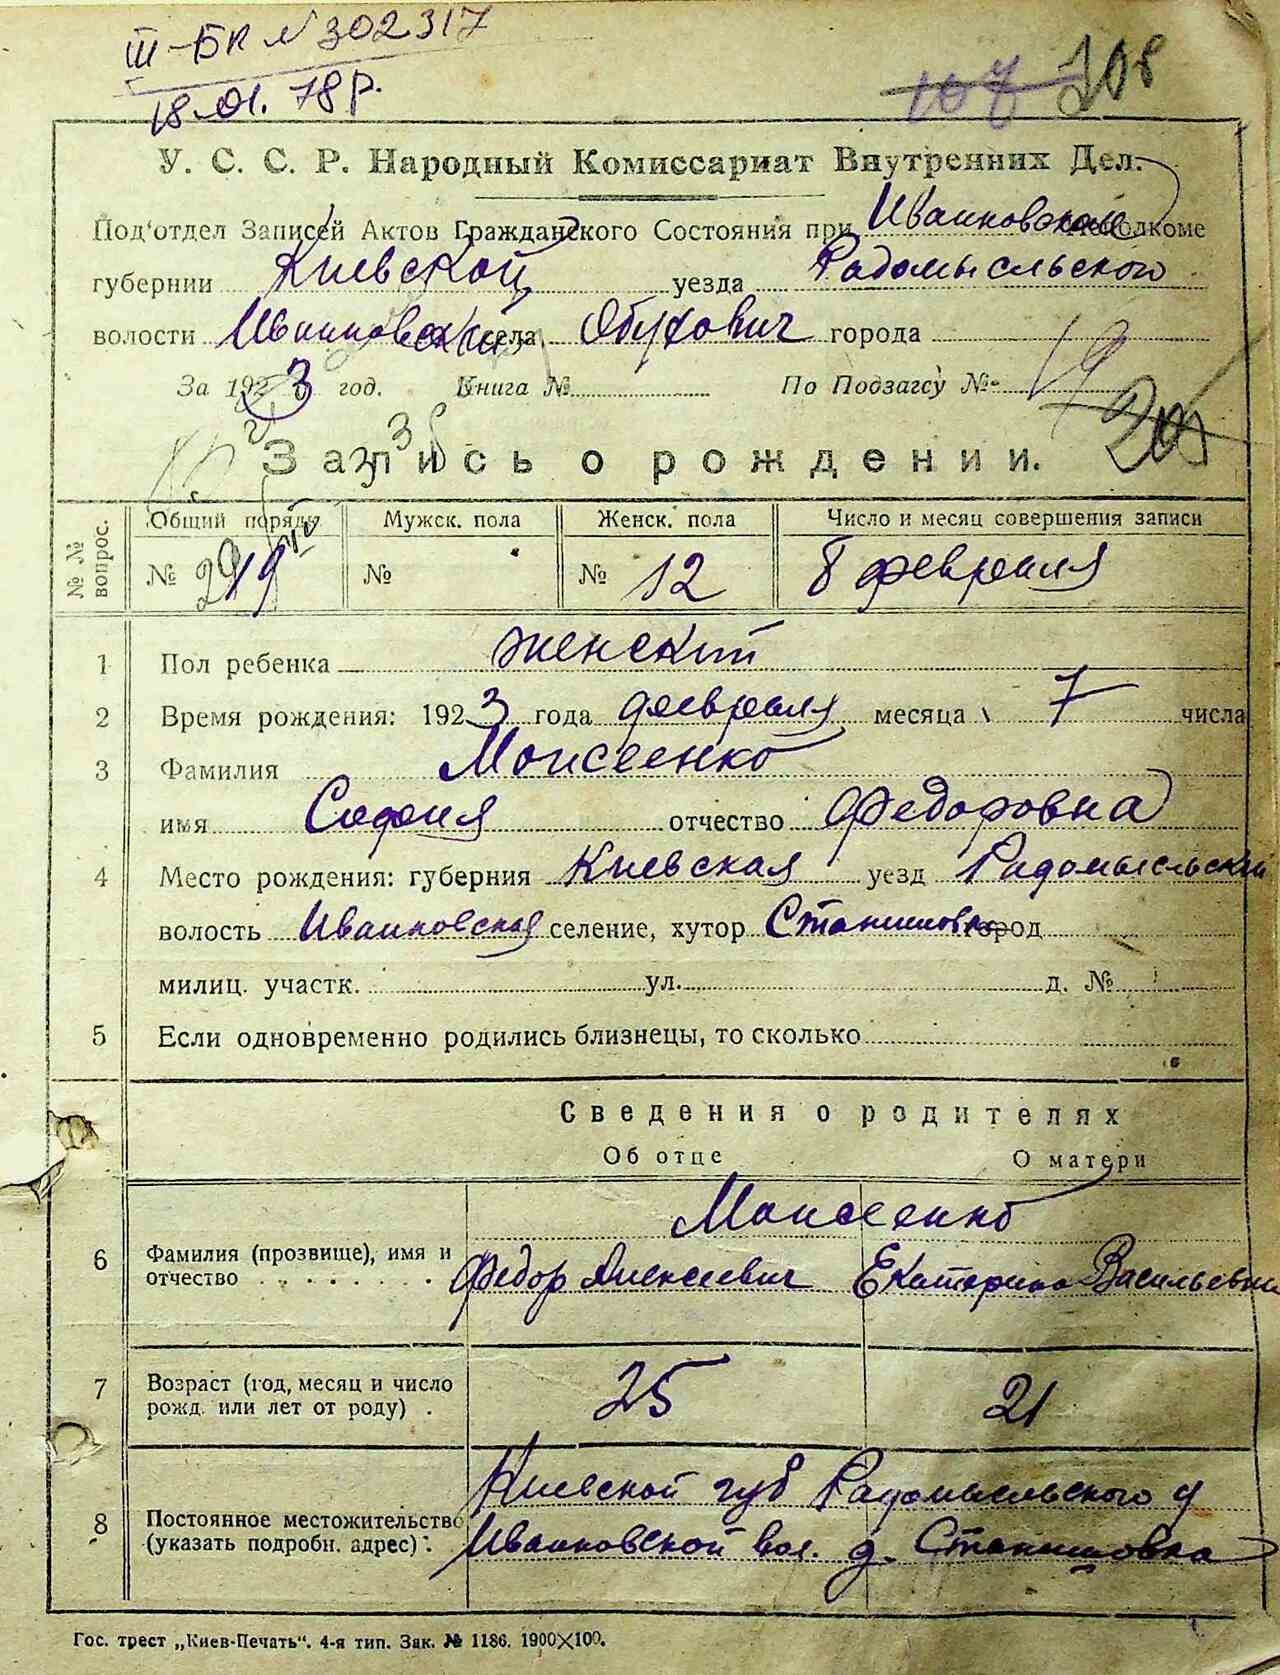 III-БК № 302317
18.01.78 р.
107 208
У. С. С. Р. Народный Комиссариат Внутренних Дел.
Под'отдел Записей Актов Гражданского Состояния при Иванковском исполкоме
губернии Киевской уезда Радомысльского
волости Иванковской села Обухович города
За 1923 год. Книга № По Подзагсу № 19
205
Запись о рождении.
№ № вопрос. Общий поряд. Мужск. пола Женск. пола Число и месяц совершения записи
№ 19 № № 12 8 февраля
1 Пол ребенка женский
2 Время рождения: 1923 года февраля месяца 7 числа
3 Фамилия Моисеенко
имя София отчество Федоровна
4 Место рождения: губерния Киевская уезд Радомысльский
волость Иванковская селение, хутор Станишовка город
милиц. участк. ул. д. №
5 Если одновременно родились близнецы, то сколько
Сведения о родителях
Об отце О матери
Моисеенко
6 Фамилия (прозвище), имя и
отчество Федор Алексеевич Екатерина Васильевна
7 Возраст (год, месяц и число
рожд. или лет от роду) 25 21
Киевской губ Радомысльского у
8 Постоянное местожительство
(указать подробн. адрес) Иванковской вол. д. Станишовка
Гос. трест „Киев-Печать“. 4-я тип. Зак. № 1186. 1900×100.